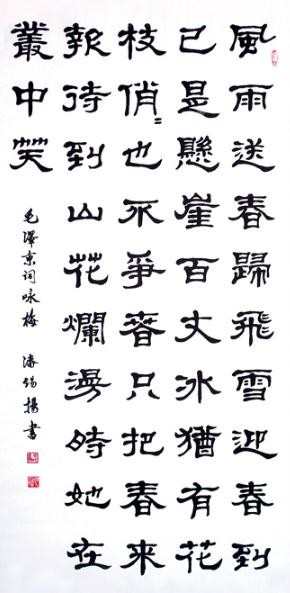 風雨送春歸飛雪迎春到
已是懸崖百丈冰猶有花
枝俏〻也不爭春只把春來
報待到山花爛漫時她在
叢中笑
毛澤東词咏梅 潘 書